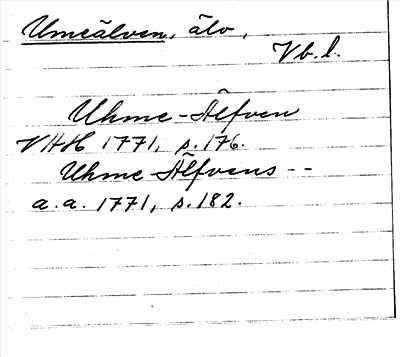 Umeälven, älv,
Vb. l.
Uhme-Älfven
VHH 1771, s. 176.
Uhme-Älfvens --
a. a. 1771, s. 182.